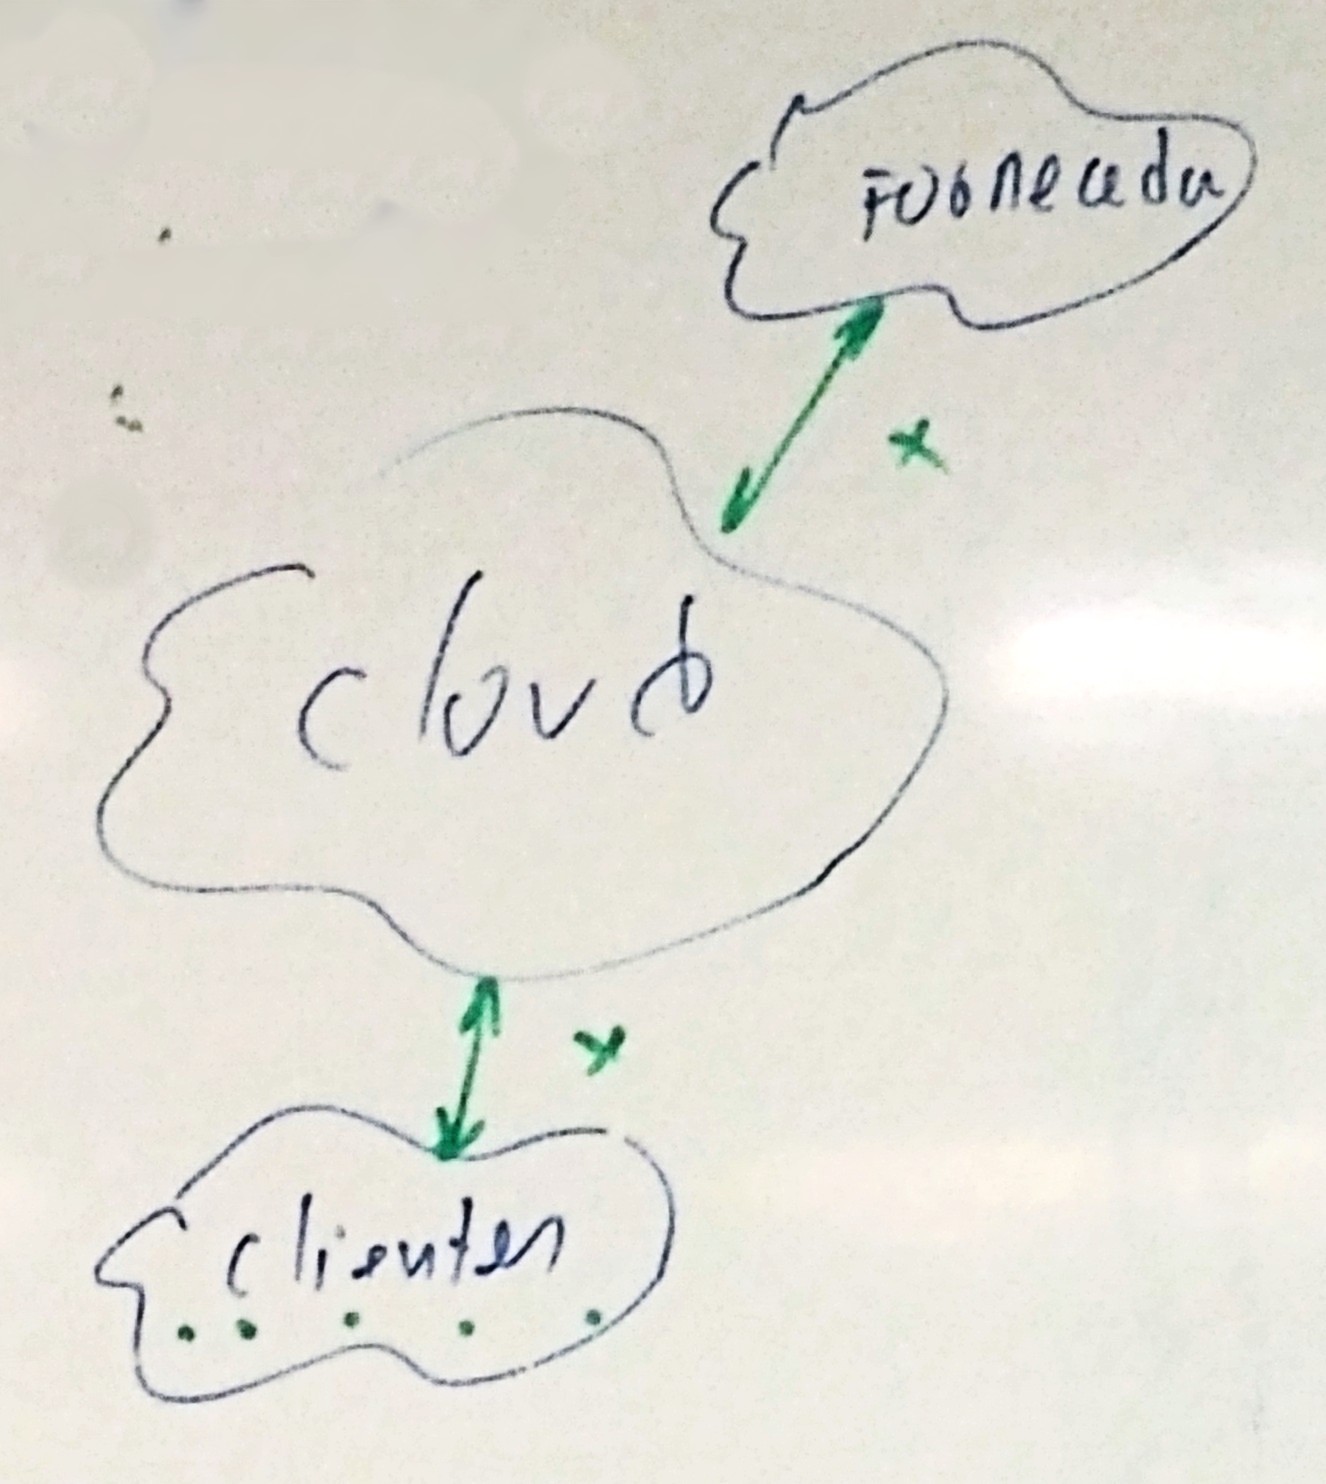 Fornecedor
x
Cloud
x
Clientes